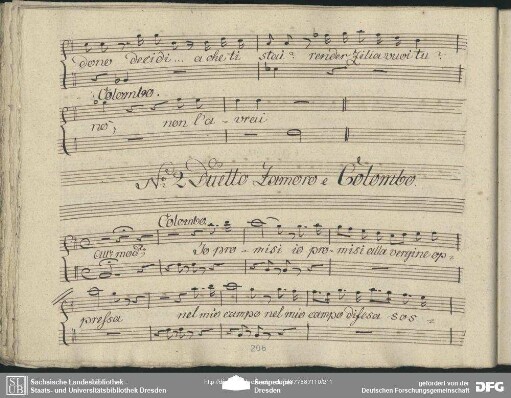 dono decidi... a che ti stai? render Zelia vuoi tu?
Colombo.
nò, non l'avrai
No. 2 Duetto Zamoro e Colombo.
Colombo.
Io promisi io promisi alla vergine op=
pressa nel mio campo nel mio campo difesa sos=
206
Sächsische Landesbibliothek
Staats- und Universitätsbibliothek Dresden
Dresden
gefördert von der
Deutschen Forschungsgemeinschaft
DFG